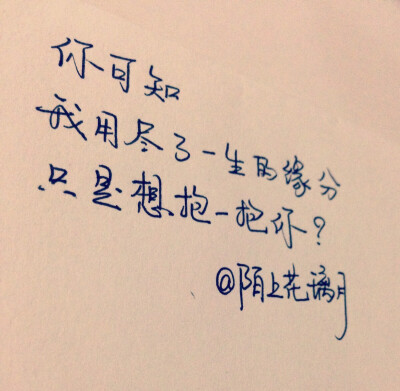 你可知
我用尽了一生的缘分
只是想抱一抱你?
@陌上花璃月